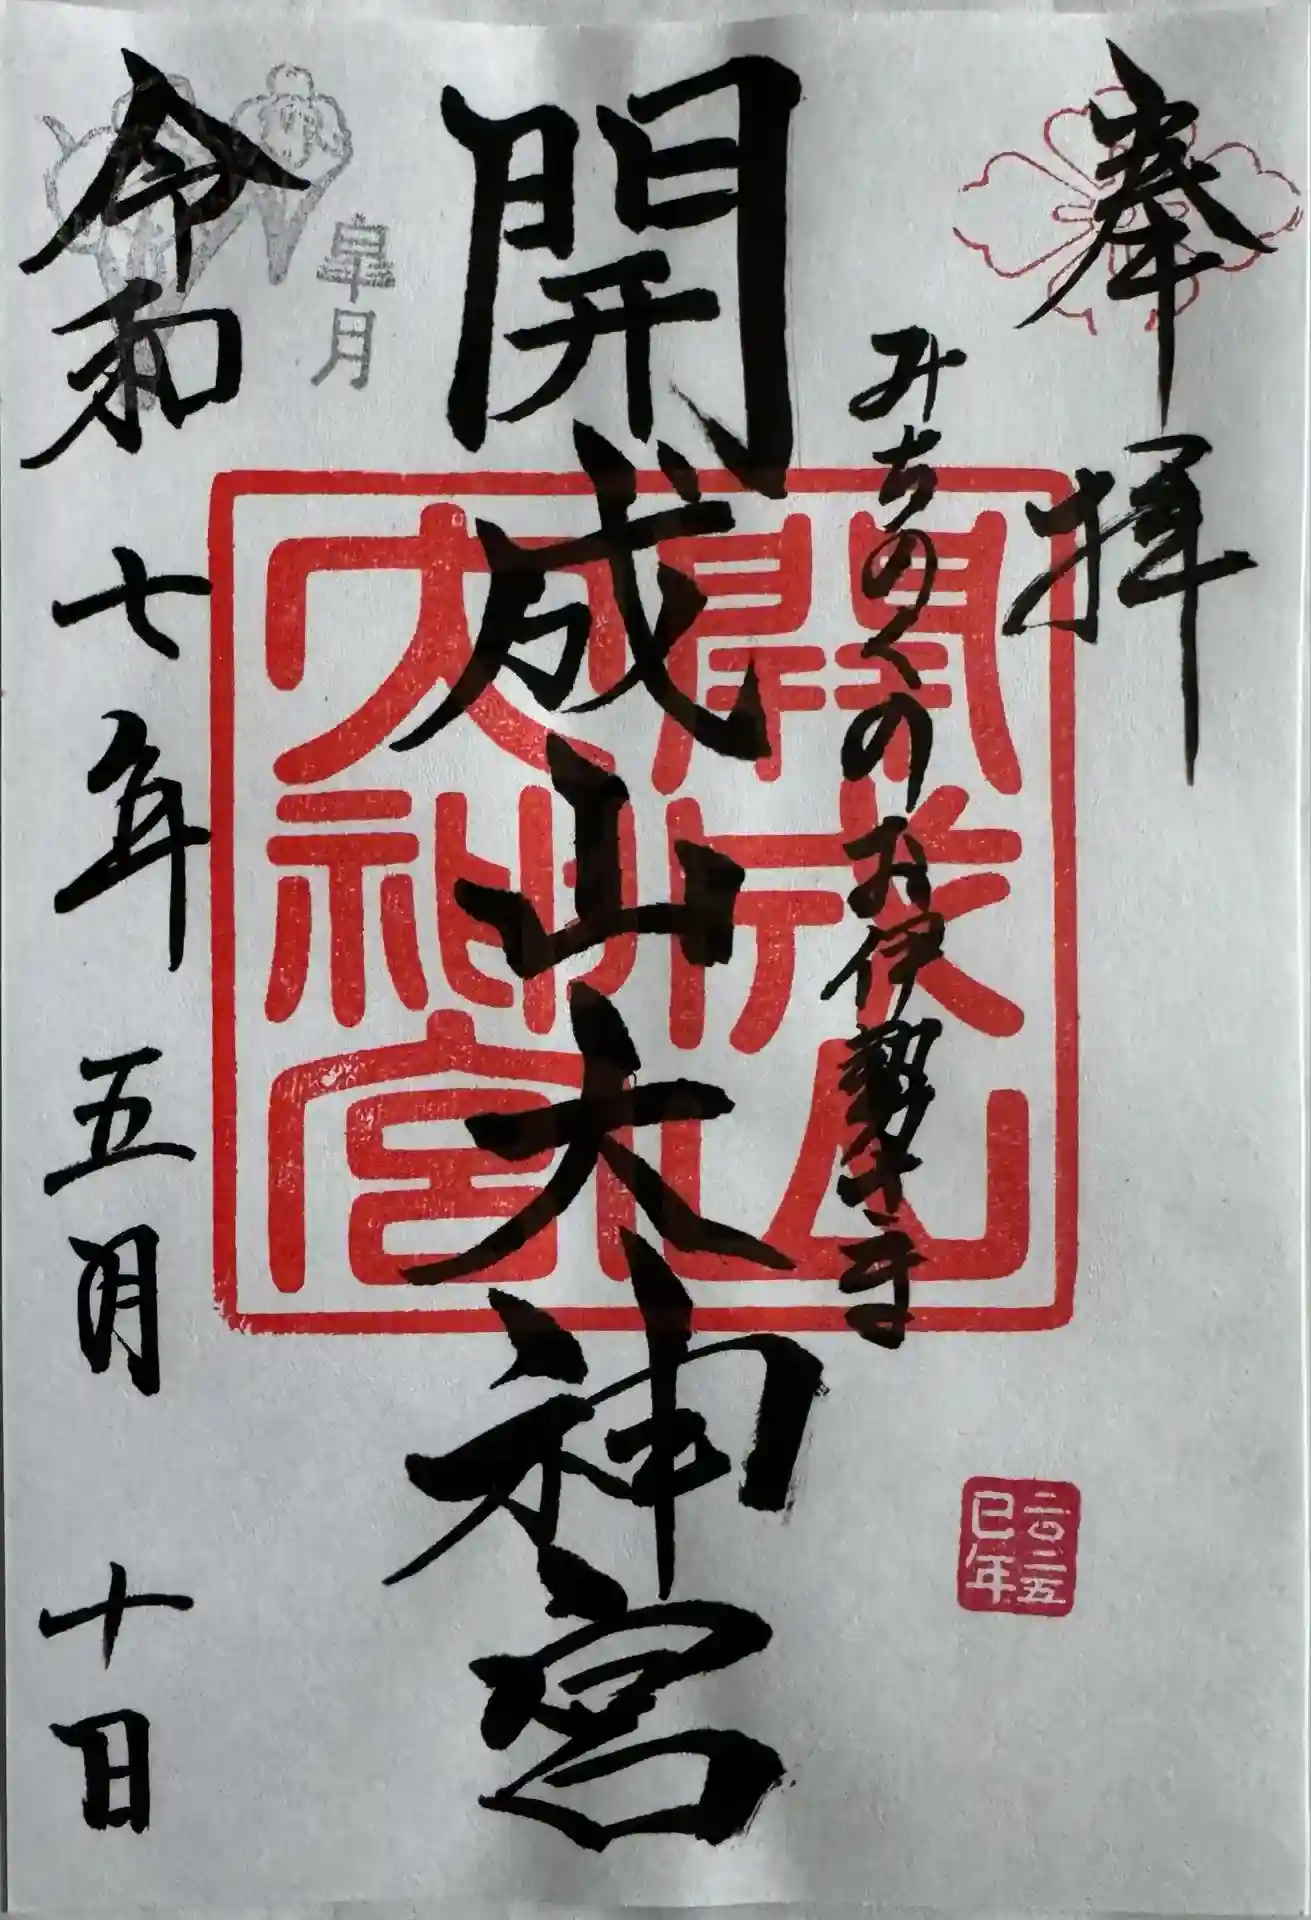 奉拝
みちのくのお伊勢さま
開成山大神宮
開成山
大神宮
二〇二五
巳年
皐月
令和七年五月十日